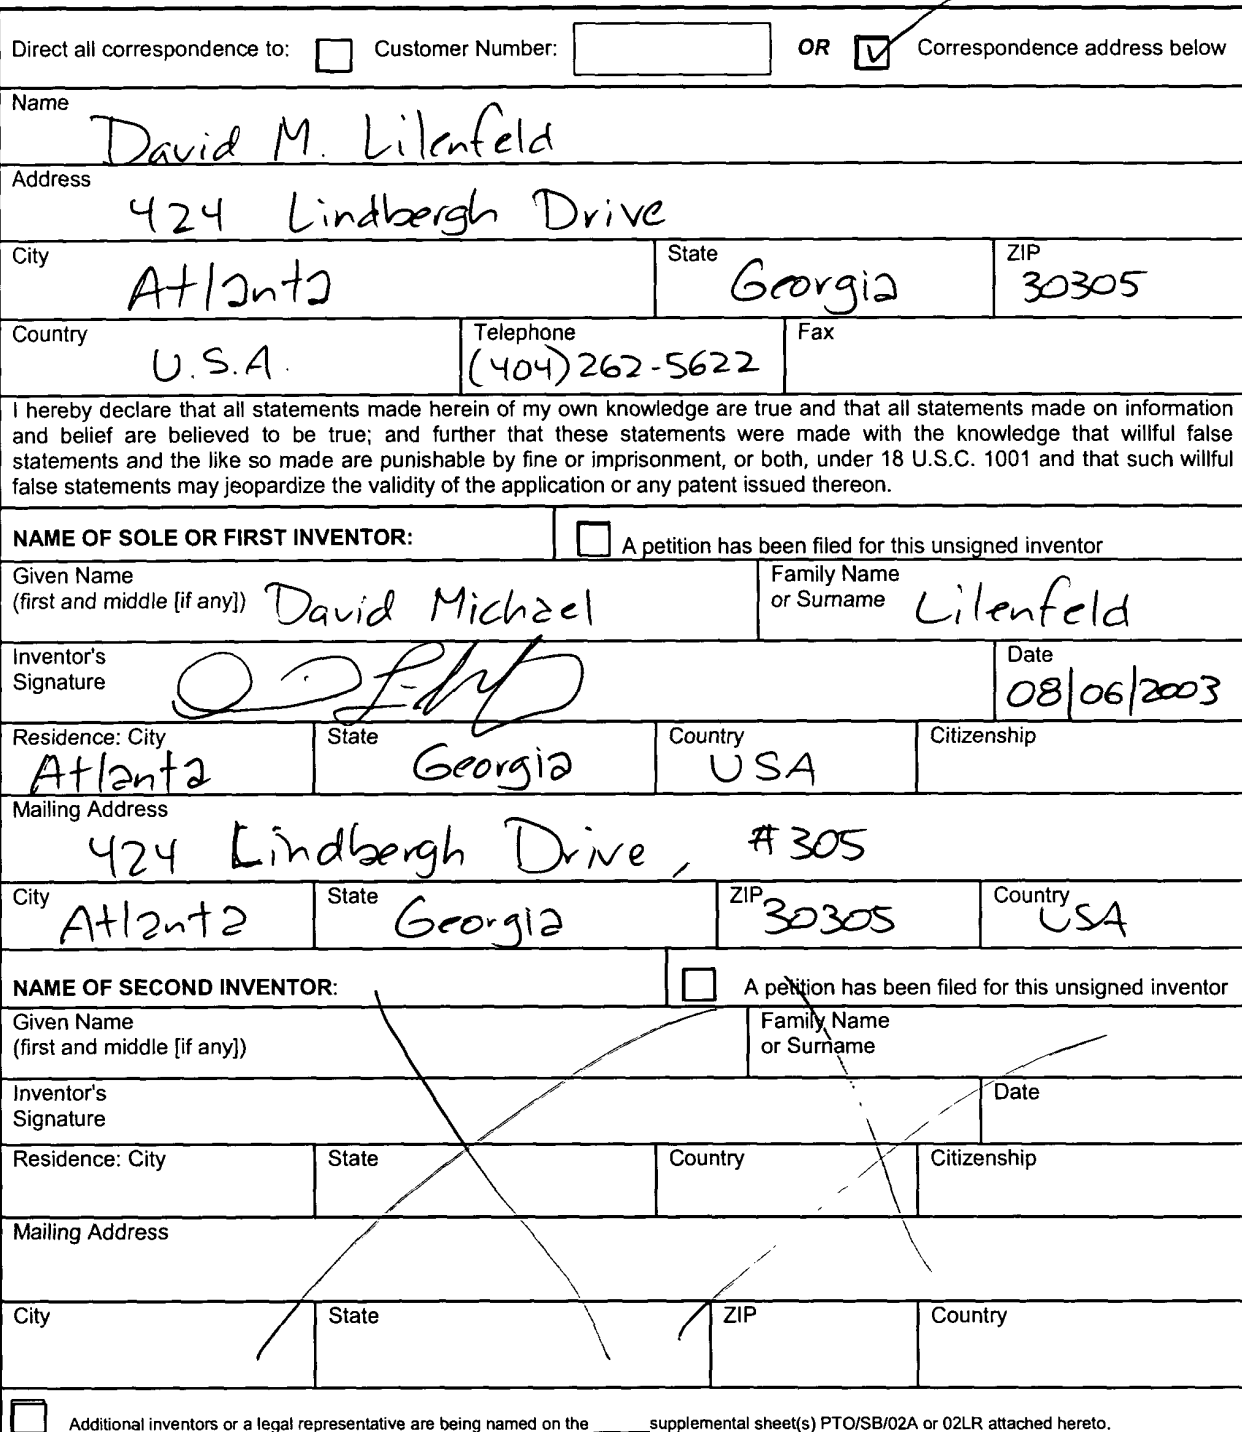 Direct all correspondence to: Customer Number: OR Correspondence address below
Name
David M. Lilenfeld
Address
424 Lindbergh Drive
City State ZIP
Atlanta Georgia 30305
Country Telephone Fax
U.S.A. (404) 262-5622
I hereby declare that all statements made herein of my own knowledge are true and that all statements made on information
and belief are believed to be true; and further that these statements were made with the knowledge that willful false
statements and the like so made are punishable by fine or imprisonment, or both, under 18 U.S.C. 1001 and that such willful
false statements may jeopardize the validity of the application or any patent issued thereon.
NAME OF SOLE OR FIRST INVENTOR: A petition has been filed for this unsigned inventor
Given Name Family Name
(first and middle [if any]) David Michael or Surname Lilenfeld
Inventor's Date
Signature 08/06/2003
Residence: City State Country Citizenship
Atlanta Georgia USA
Mailing Address
424 Lindbergh Drive, #305
City State ZIP Country
Atlanta Georgia 30305 USA
NAME OF SECOND INVENTOR: A petition has been filed for this unsigned inventor
Given Name Family Name
(first and middle [if any]) or Surname
Inventor's Date
Signature
Residence: City State Country Citizenship
Mailing Address
City State ZIP Country
Additional inventors or a legal representative are being named on the _____ supplemental sheet(s) PTO/SB/02A or 02LR attached hereto.